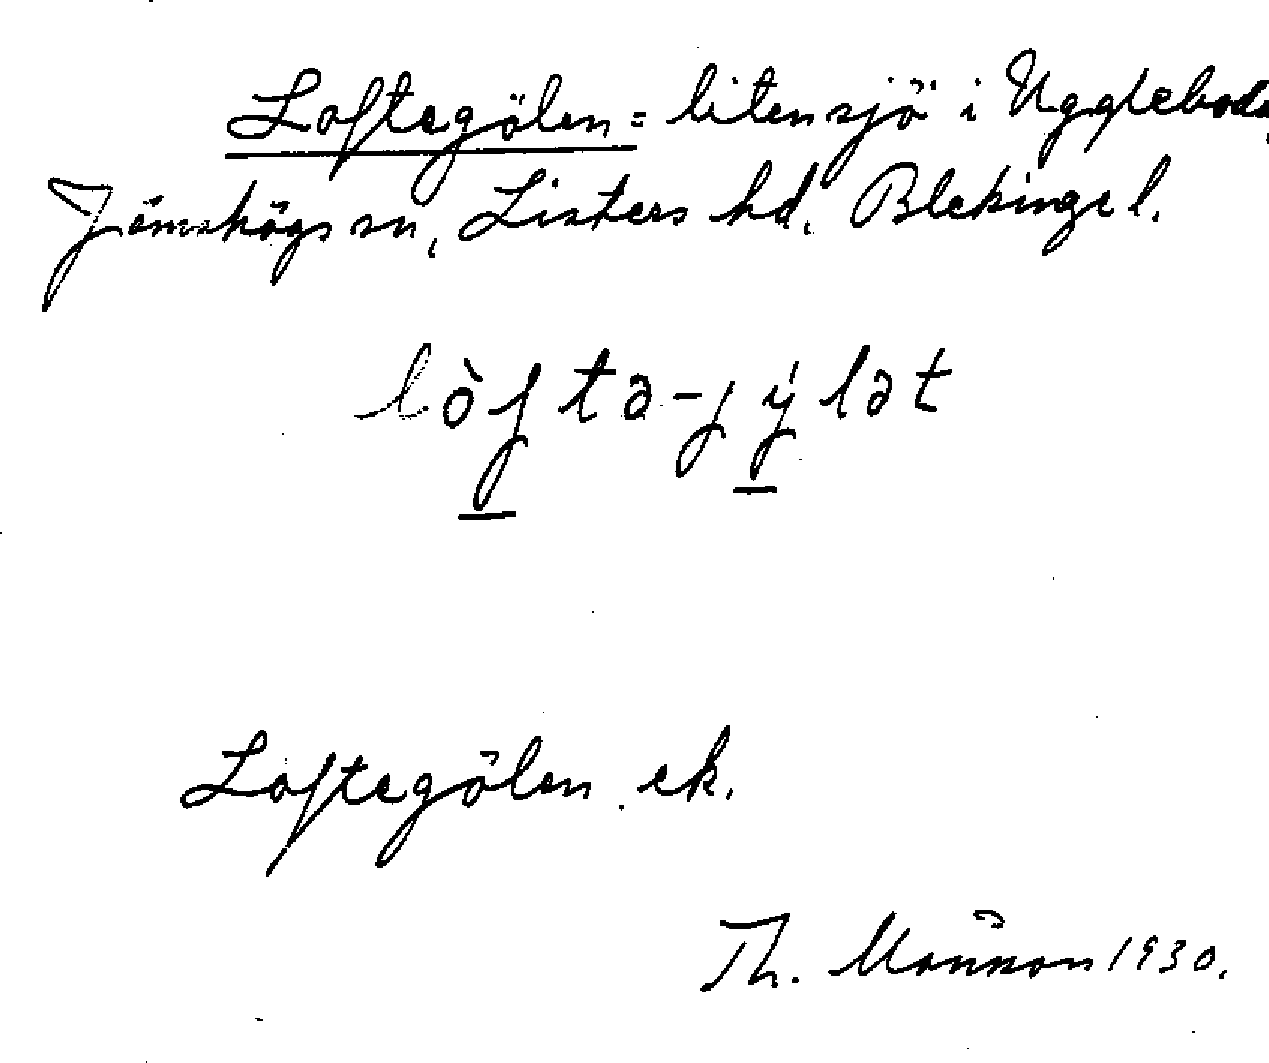 Loftegölen = liten sjö i Uggleboda,
Jämshögs sn, Listers hd. Blekinge l.
lòftə-jýlət
Loftegölen. ek.
Th. 1930.